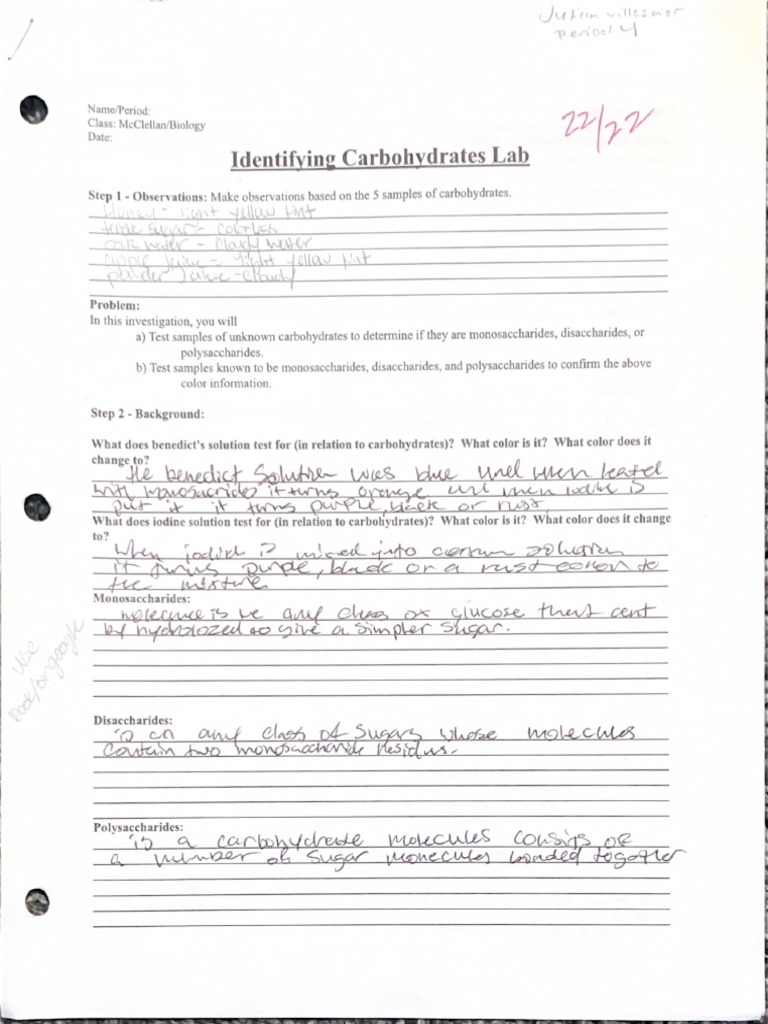 period 4
Name/Period:
Class: McClellan/Biology
Date:
22/22
Identifying Carbohydrates Lab
Step 1 - Observations: Make observations based on the 5 samples of carbohydrates.
Honey - light yellow tint
table sugar - colorless
water - cloudy water
apple juice - light yellow tint
juice - cloudy
Problem:
In this investigation, you will
a) Test samples of unknown carbohydrates to determine if they are monosaccharides, disaccharides, or
polysaccharides.
b) Test samples known to be monosaccharides, disaccharides, and polysaccharides to confirm the above
color information.
Step 2 - Background:
What does benedict's solution test for (in relation to carbohydrates)? What color is it? What color does it
change to?
The benedict Solution was blue when
with it turns orange when iodine is
put it it turns purple, black or rust
What does iodine solution test for (in relation to carbohydrates)? What color is it? What color does it change
to?
When iodine is mixed into solution
it turns purple, black or a rust to
the mixture
Monosaccharides:
any class of glucose that cant
by hydrolozed to give a simpler sugar.
Use
book/or google
Disaccharides:
is an any class of sugars whose molecules
contain two monosaccharide
Polysaccharides:
is a carbohydrate molecules consists of
a number of sugar molecules bonded together